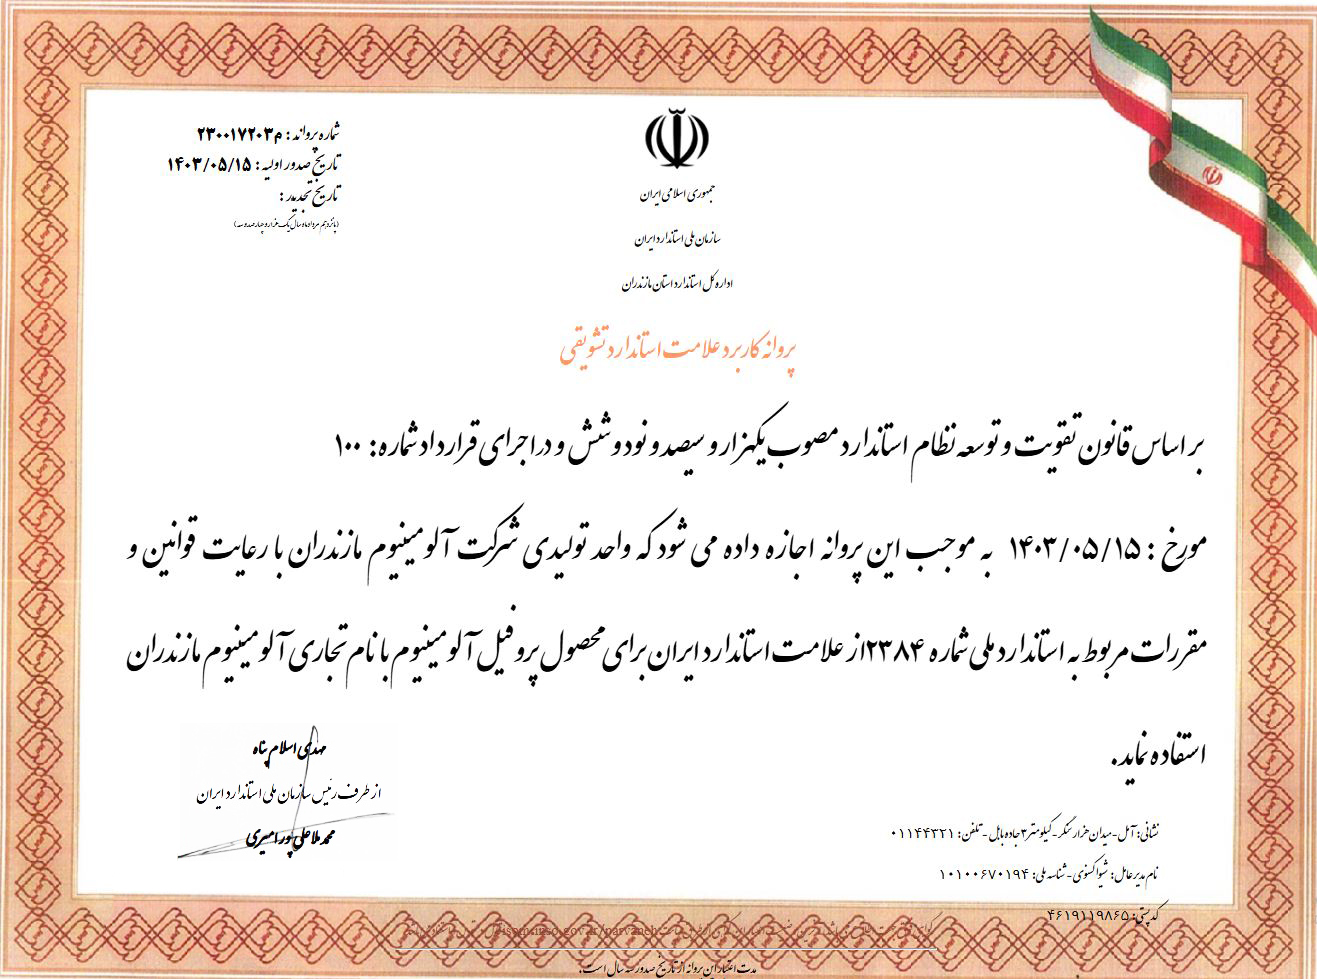 جمهوری اسلامی ایران
سازمان ملی استاندارد ایران
اداره کل استاندارد استان مازندران
شماره پروانه : م۲۳۰۰۱۷۲۰۳
تاریخ صدور اولیه : ۱۴۰۳/۰۵/۱۵
تاریخ تجدید :
(پانزدهم مرداد ماه سال یک هزار و چهارصد و سه)
پروانه کاربرد علامت استاندارد تشویقی
بر اساس قانون تقویت و توسعه نظام استاندارد مصوب یکهزار و سیصد و نود و شش و در اجرای قرارداد شماره: ۱۰۰
مورخ : ۱۴۰۳/۰۵/۱۵ به موجب این پروانه اجازه داده می شود که واحد تولیدی شرکت آلومینیوم مازندران با رعایت قوانین و
مقررات مربوط به استاندارد ملی شماره ۲۳۸۴از علامت استاندارد ایران برای محصول پروفیل آلومینیوم با نام تجاری آلومینیوم مازندران
استفاده نماید.
مهدی اسلام پناه
از طرف رئیس سازمان ملی استاندارد ایران
محمد ملاعلی پور امیری
نشانی: آمل-میدان هزار سنگر-کیلومتر۳جاده بابل - تلفن: ۰۱۱۴۴۳۲۱
نام مدیرعامل: شیوا کسنوی-شناسه ملی: ۱۰۱۰۰۶۷۰۱۹۴
کد پستی: ۴۶۱۹۱۱۹۸۶۵
isom.inso.gov.ir/parvaneh
مدت اعتبار این پروانه از تاریخ صدور سه سال است.